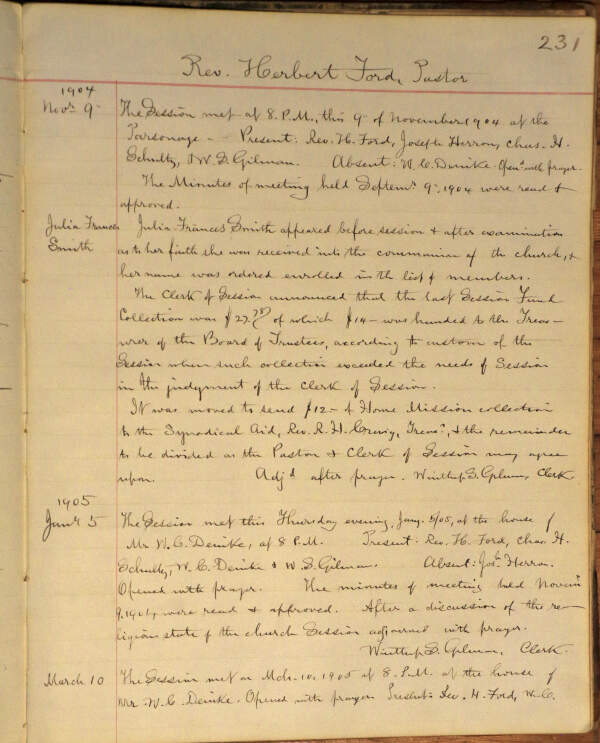 231
Rev. Herbert Ford, Pastor
1904
Novr 9- The Session met at 8. P.M., this 9- of November 1904 at the
Parsonage - Present: Rev. H. Ford, Joseph Herron, Chas. H.
Schultz, & W. S. Gilman. Absent: W. C. Denike. Opend with prayer.
The Minutes of meeting held Septemr 9, 1904 were read &
approved.
Julia Frances Smith Julia Frances Smith appeared before session & after examination
as to her faith she was received into the communion of the church, &
her name was ordered enrolled in the list of members.
The Clerk of Session announced that the last Session Fund
Collection was $27. of which $14- was handed to the Treas-
urer of the Board of Trustees, according to custom of the
Session when such collection exceeded the needs of Session
in the judgment of the Clerk of Session.
It was moved to send $12- of Home Mission collection
to the Synodical Aid, Rev. R. H. Treasr, & the remainder
to be divided as the Pastor & Clerk of Session may agree
upon. Adjd after prayer. Winthrop S. Gilman, Clerk.
1905
5 The Session met this Thursday evening, Jany. 5/05, at the house of
Mr W. C. Denike, at 8 P.M. Present: Rev. H. Ford, Chas. H.
Schultz, W. C. Denike & W. S. Gilman. Absent: Jos. Herron.
Opened with prayer. The minutes of meeting held
9, 1904, were read & approved. After a discussion of the re-
ligious state of the church Session adjourned with prayer.
Winthrop S. Gilman, Clerk.
March 10 The Session met on Mch. 10, 1905 at 8. P.M. at the house of
Mr. W. C. Denike. Opened with prayer. Present: Rev. H. Ford, W. C.